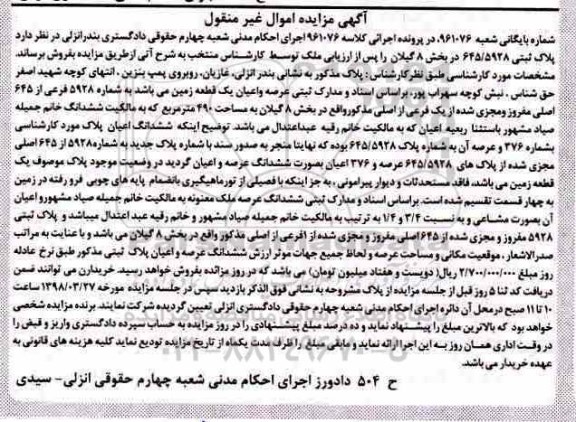 آگهی مزایده اموال غیر منقول
شماره بایگانی شعبه ۹۶۱۰۷۶، در پرونده اجرائی کلاسه ۹۶۱۰۷۶ اجرای احکام مدنی شعبه چهارم حقوقی دادگستری بندرانزلی در نظر دارد
پلاک ثبتی ۶۴۵/۵۹۲۸ در بخش ۸ گیلان را پس از ارزیابی ملک توسط کارشناس منتخب به شرح آتی از طریق مزایده بفروش برساند.
مشخصات مورد کارشناسی طبق نظر کارشناس : پلاک مذکور به نشانی بندر انزلی، غازیان، روبروی پمپ بنزین ، انتهای کوچه شهید اصغر
حق شناس ، نبش کوچه سهراب پور، براساس اسناد و مدارک ثبتی عرصه واعیان یک قطعه زمین می باشد به شماره ۵۹۲۸ فرعی از ۶۴۵
اصلی مفروز ومجزی شده از یک فرعی از اصلی مذکور واقع در بخش ۸ گیلان به مساحت ۴۹۰ مترمربع که به مالکیت ششدانگ خانم جمیله
صیاد مشهور باستثنا ربعیه اعیان که به مالکیت خانم رقیه عبداعتدال می باشد. توضیح اینکه ششدانگ اعیان پلاک مورد کارشناسی
بشماره ۳۷۶ و عرصه آن به شماره پلاک ۶۴۵/۵۹۲۸ بوده که نهایتا منجر به صدور سند با شماره پلاک جدید به شماره ۵۹۲۸ از ۶۴۵ اصلی
مجزی شده از پلاک های ۶۴۵/۵۹۲۸ عرصه و ۳۷۶ اعیان بصورت ششدانگ عرصه و اعیان گردید در وضعیت موجود پلاک موصوف یک
قطعه زمین می باشد، فاقد مستحدثات و دیوار پیرامونی ، به جز اینکه با فصیلی از تورماهیگیری بانضمام پایه های چوبی فرو رفته در زمین
به چهار قسمت تقسیم شده است. براساس اسناد و مدارک ثبتی ششدانگ عرصه ملک معنونه به مالکیت خانم جمیله صیاد مشهور و اعیان
آن بصورت مشاعی و به نسبت ۳/۴ و ۱/۴ به ترتیب به مالکیت خانم جمیله صیاد مشهور و خانم رقیه عبد اعتدال میباشد و پلاک ثبتی
۵۹۲۸ مفروز و مجزی شده از ۶۴۵ اصلی مفروز و مجزی شده از ۱ فرعی از اصلی مذکور واقع در بخش ۸ گیلان می باشد و با عنایت به مراتب
صدرالاشعار ، موقعیت مکانی و مساحت عرصه و لحاظ جمیع جهات موثر ارزش ششدانگ عرصه و اعیان پلاک ثبتی مذکور طبق نرخ عادله
روز مبلغ ۲/۷۰۰/۰۰۰/۰۰۰ ریال( دویست و هفتاد میلیون تومان) می باشد که در روز مزائده بفروش خواهد رسید. خریدارن می توانند ضمن
دریافت کد تنا ۵ روز قبل از جلسه مزایده از پلاک مشروحه به نشانی فوق الذکر بازدید سپس در جلسه مزایده مورخه ۱۳۹۸/۰۳/۲۷ ساعت
۱۰ تا ۱۱ صبح درمحل آن دائره اجرای احکام مدنی شعبه چهارم حقوقی دادگستری انزلی تعیین گردیده شرکت نمایند. برنده مزایده شخصی
خواهد بود که بالاترین مبلغ را پیشنهاد نماید و ده درصد مبلغ پیشنهادی را در روز مزایده به حساب سپرده دادگستری واریز و قبض را
در وقت اداری همان روز به این اجرا ارائه نماید و مابقی مبلغ را ظرف مدت یکماه از تاریخ مزایده تودیع نماید کلیه هزینه های قانونی به
عهده خریدار می باشد.
ح ۵۰۴ دادورز اجرای احکام مدنی شعبه چهارم حقوقی انزلی- سیدی